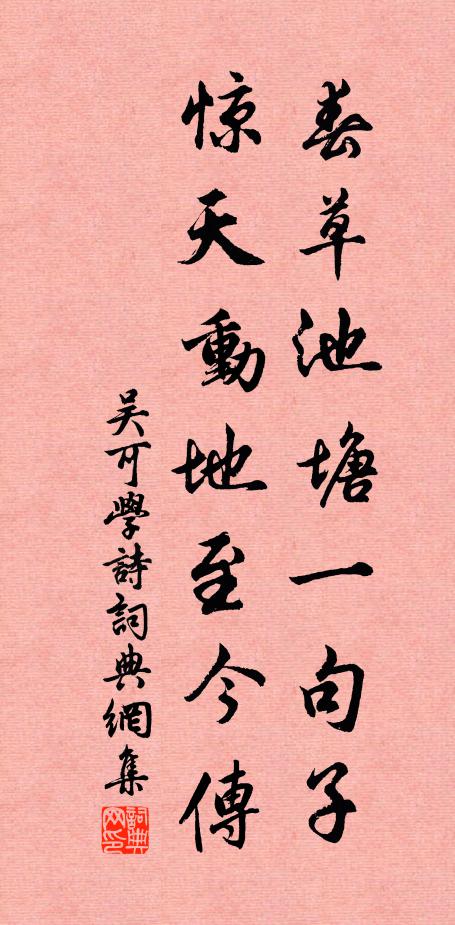 春草池塘一句子
惊天動地至今傳
吴可學詩詞典網集
詞典
网印